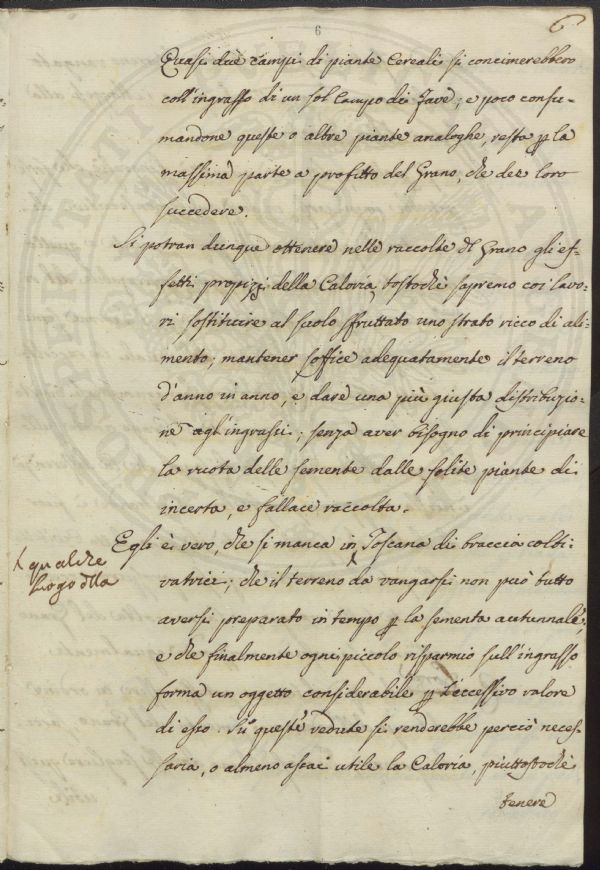 6
6
Quasi due campi di piante Cereali si concimerebbero
coll'ingrasso di un sol Campo di Fave; e poco consu-
mandone queste o altre piante analoghe, resta p la
massima parte a profitto del Grano, che dee loro
succedere.
Si potran dunque ottenere nelle raccolte di Grano gli ef-
fetti propizj della Caloria, tostochè sapremo coi lavo-
ri sostituire al suolo sfruttato uno strato ricco di ali-
mento; mantener soffice adequatamente il terreno
d'anno in anno, e dare una più giusta distribuzio-
ne agl'ingrassi; senza aver bisogno di principiare
la ruota delle semente dalle solite piante di
incerta, e fallace raccolta.
Egli è vero, che si manca in Toscana di braccia colti-
qualche
luogo della
vatrici; che il terreno da vangarsi non può tutto
aversi preparato in tempo p la sementa autunnale,
e che finalmente ogni piccolo risparmio sull'ingrasso
forma un oggetto considerabile p l'eccessivo valore
di esso. Su queste vedute si renderebbe perciò neces-
saria, o almeno assai utile la Caloria, piuttostochè
tenere